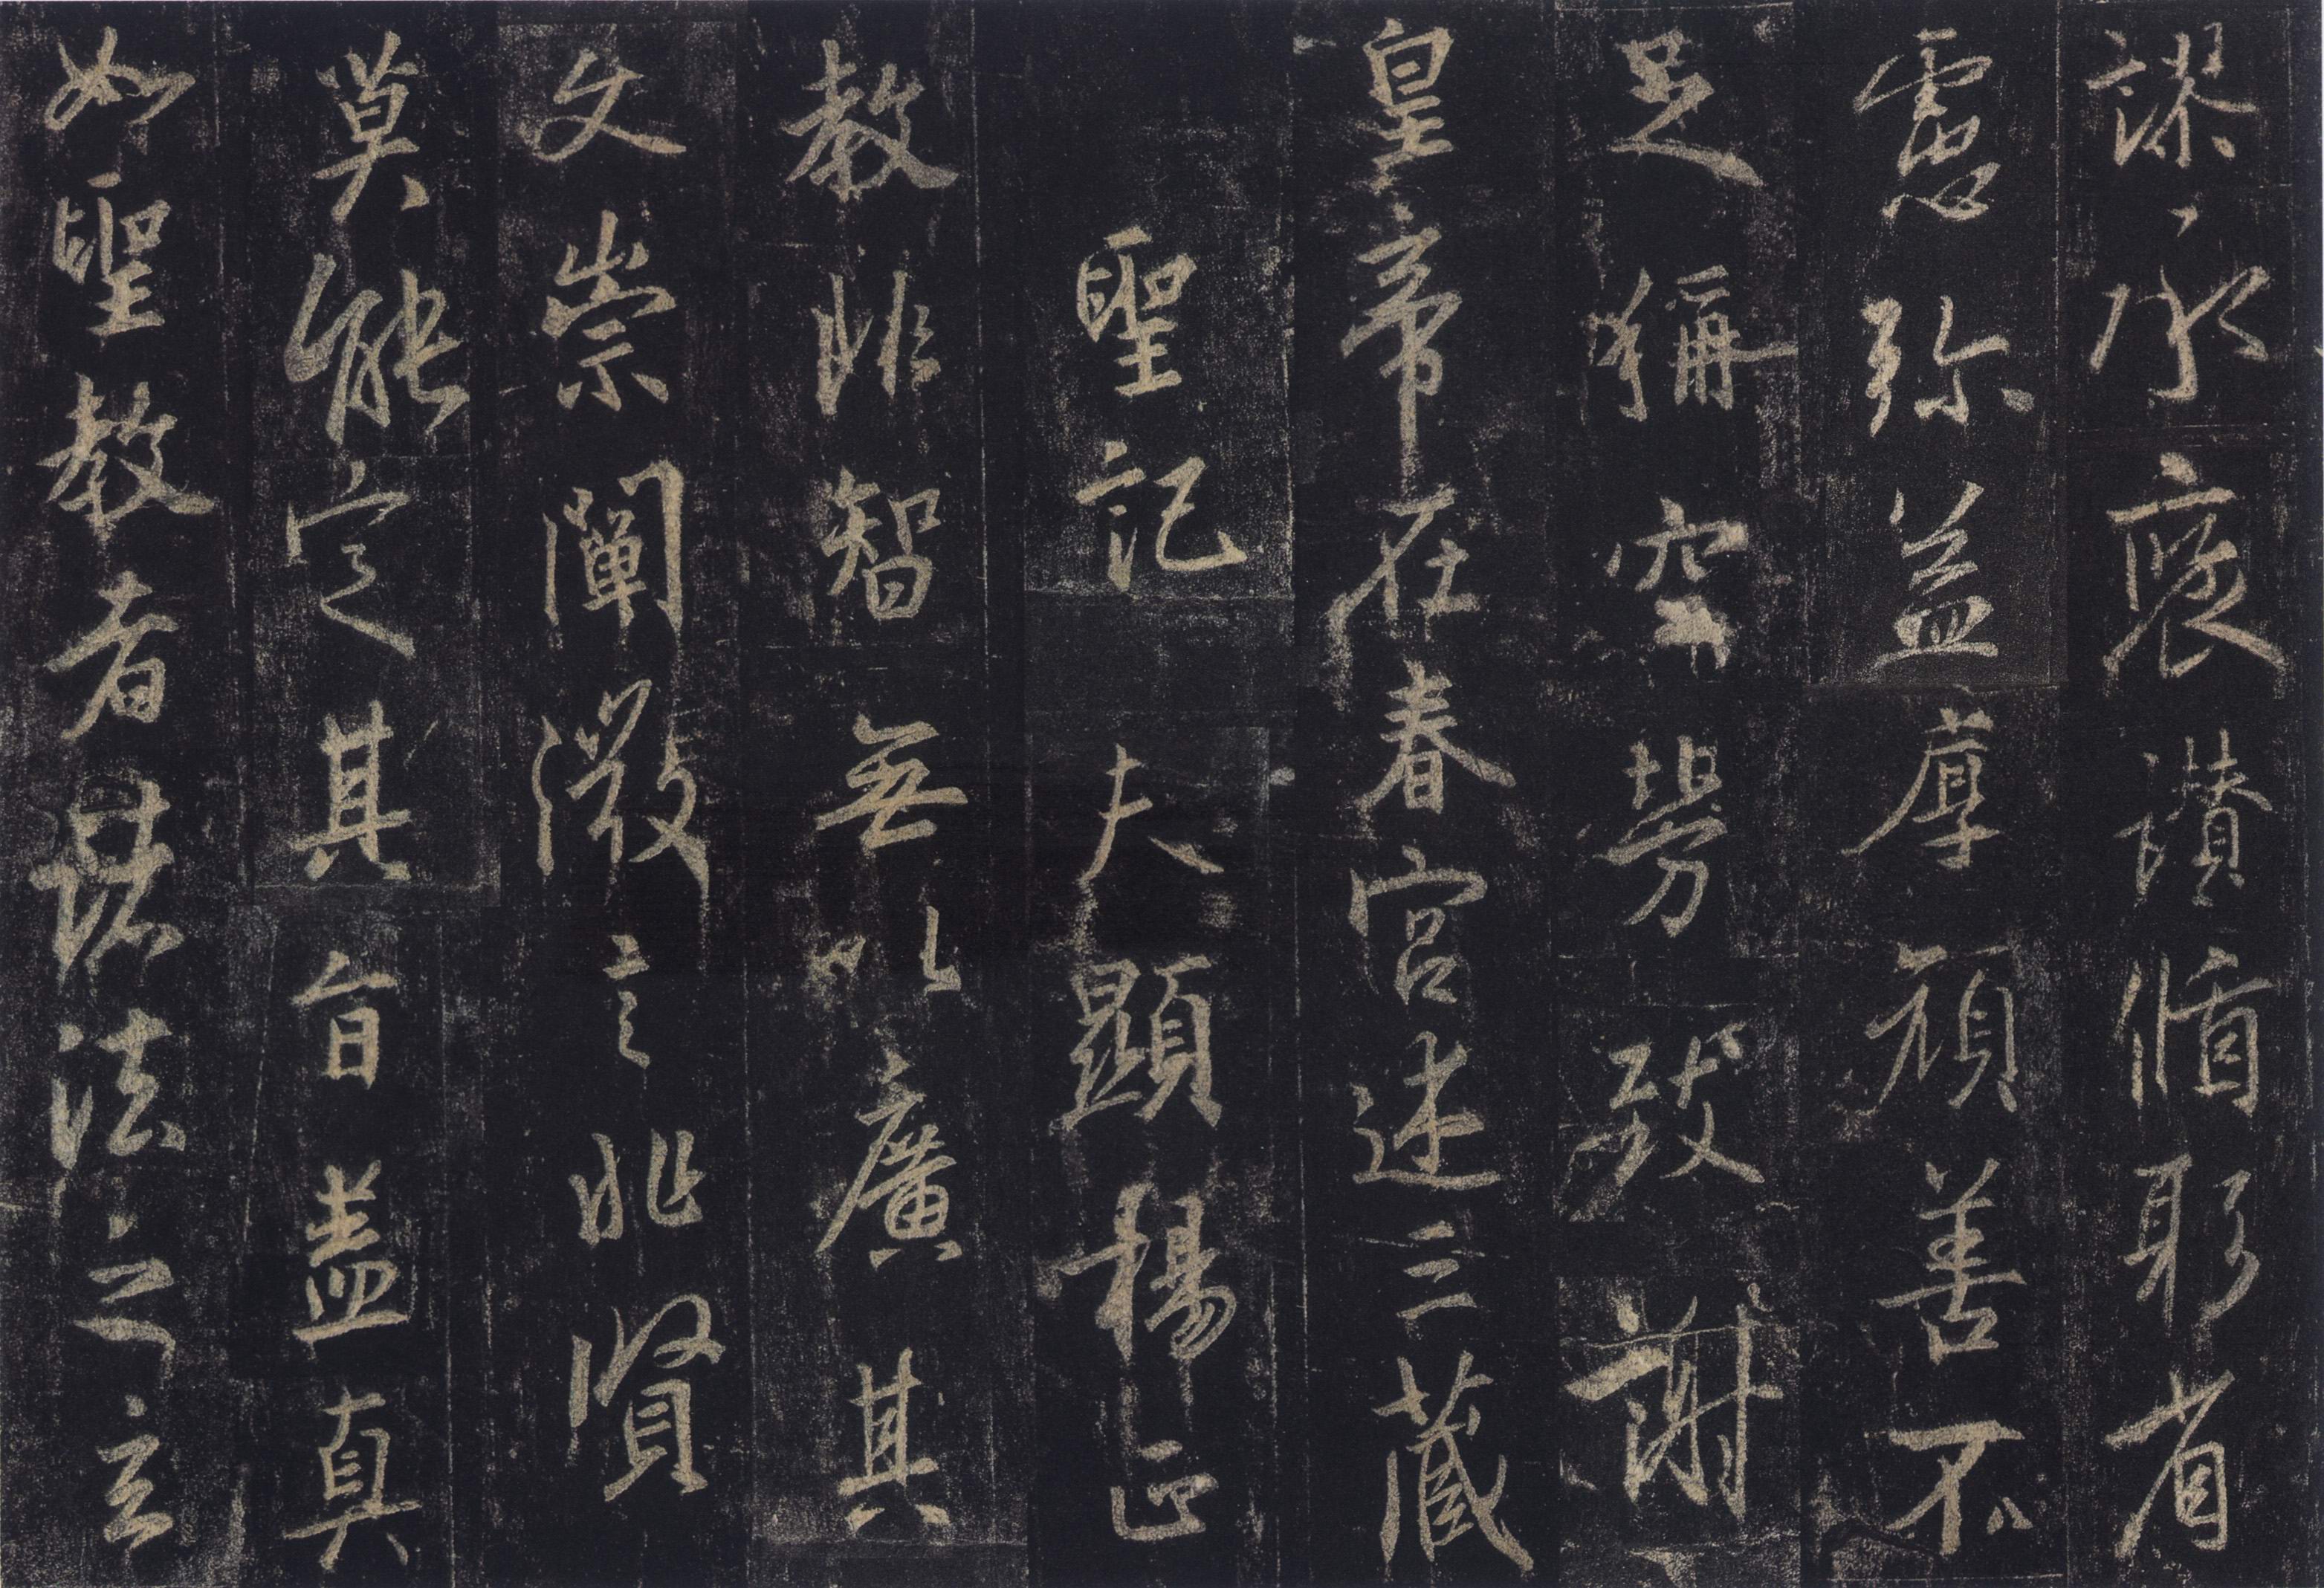 謬承褒讚循躬省
慮弥益厚顏善不
足稱空勞致謝
皇帝在春宮述三藏
聖記 夫顯揚正
教非智無以廣其
文崇闡微言非賢
莫能定其旨蓋真
如聖教者諸法之玄